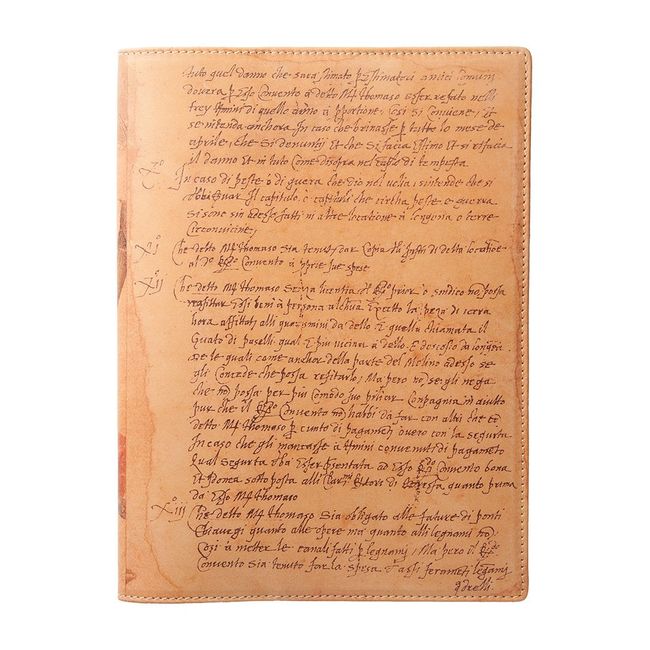 tutto quel danno che sara stimato p Estimatori amici comuni
dovera p esso Convento a detto M Thomaso esser refato nelli
trey termini di quello anno a portione, cosi si conviene, et
se intenda anchora In caso che brinasse p tutto lo mese de
aprile, che si denuntij et che si facia Estimo et si refacia
il danno et in tuto come disopra nel caso di tempesta
X° In caso di peste o di guera che dio nel volia, sintende che si
debi servar Il capitulo, e capituli che circha peste e guerra
si sono sin adesso fatti in altre locatione a longena, o terre
circonvicine,
XI° Che detto M Thomaso sia tenuto dar Copia di delta locatione
al Convento a sue spese
XII Che detto M Thomaso senza licentia di prior o sindico no possa
refittar essi beni a persona alchuna Excetto la peza di terra
hora affittati alli da dello E quella chiamata il
Guato di Paselli qual E piu vicina a dello, E discosto da longena
ne le quali come anchor della parte del Molino adesso se
gli Concede che possa refitarlo, Ma pero no se gli nega
che no possa per piu comodo suo pilliar Compagnia in aiutto
pur che il Convento no habbi da far con altri che co
detto M Thomaso p cunto di pagamen overo con la segurta
In caso che gli mancasse a termini convenuti di pagameto
qual segurta sia esser presentata ad esso Convento bona
et idonea sotto posta alli di quanto prima
da Esso M Thomaso
XIII Che detto M Thomaso sia obligato alle fature di ponti
quanto alle opere ma quanto alli legnami no,
Cosi a metter le canali fatti p legnami, Ma pero il
Convento sia tenuto far la spesa d'assi ferameti legnami